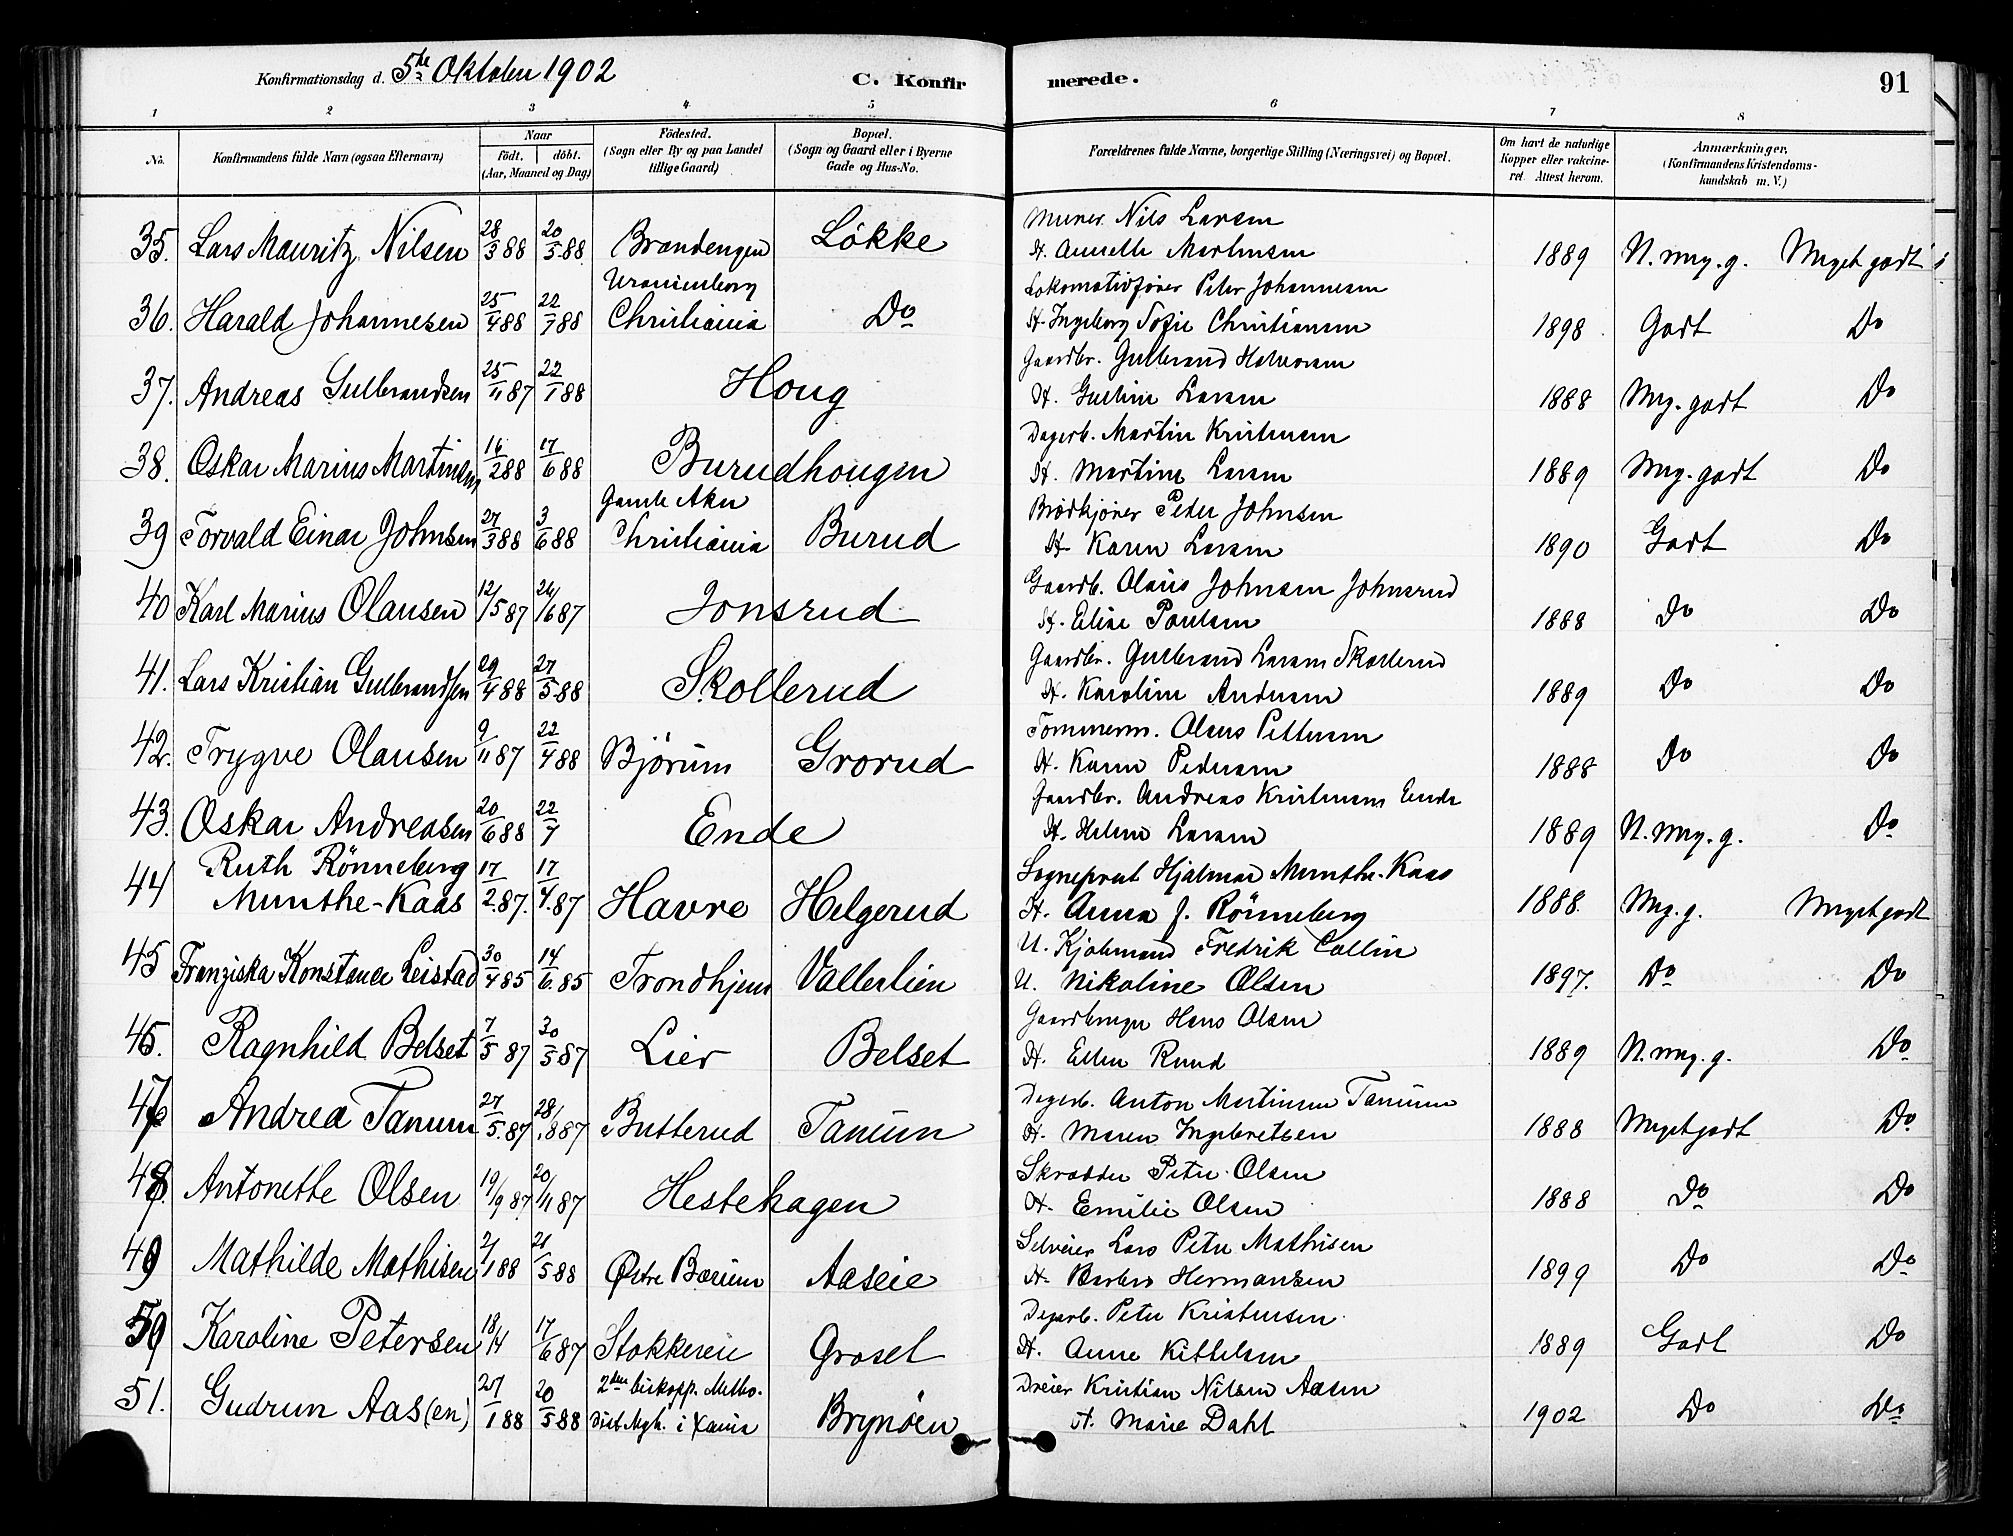 Konfirmationsdag d. 5te Oktober 1902
C. Konfirmerede.
91
1 2 3 4 5 6 7 8
No. Konfirmandens fulde Navn (ogsaa Efternavn) Naar födt. döbt. (Aar, Maaned og Dag) Födested. (Sogn eller By og paa Landet tillige Gaard) Bopæl. (Sogn og Gaard eller i Byerne Gade og Hus-No. Forældrenes fulde Navne, borgerlige Stilling (Næringsvei) og Bopæl. Om havt de naturlige Kopper eller vakcineret. Attest herom. Anmærkninger. (Konfirmandens Kristendomskundskab m. V.)
35. Lars Mauritz Nilsen 28/3 88 20/5 88 Brændengen Lökke Murer Nils Larsen
H. Annette Martinsen 1889 N. mg. g. Meget godt
36. Harald Johannesen 25/4 88 22/7 88 Uranienborg Christiania Do Lokomotivfører Peter Johannesen
H. Ingeborg Sofie Christiansen 1898 Godt Do
37. Andreas Gulbrandsen 25/11 87 22/1 88 Houg Gaardbr. Gulbrand Halvorsen
H. Gustine Larsen 1888 Mg. godt Do
38. Oskar Marius Martinsen 16/2 88 17/6 88 Burudhougen Dagarb. Martin Kristensen
H. Martine Larsen 1889 Mg. godt Do
39 Torvald Einar Johnsen 27/3 88 3/6 88 Gamle Aker Christiania Burud Brödkjörer Peder Johnsen
H. Karen Larsen 1890 Godt Do
40 Karl Marius Olausen 12/5 87 26/6 87 Jonsrud Gaardb. Olaus Johnsen Johnsrud
H. Eline Paulsen 1888 Do Do
41. Lars Kristian Gulbrandsen 29/4 88 27/5 88 Skollerud Gaardbr. Gulbrand Larsen Skollerud
H. Karoline Andersen 1889 Do Do
42. Trygve Olausen 9/11 87 22/4 88 Bjørum Grorud Tømmerm. Olaus Pettersen
H. Karen Pedersen 1888 Do Do
43. Oskar Andreasen 20/6 88 22/7 Ende Gaardbr. Andreas Kristensen Ende
H. Helene Larsen 1889 N. mg. g. Do
44 Ruth Rönneberg Munthe-Kaas 17/2. 87. 17/4. 87 Havre Helgerud Sogneprest Hjalmar Munthe-Kaas
H. Anna J. Rönneberg 1888. Mg. g. Meget godt
45 Franziska Konstance Leistad 30/4 85 14/6. 85 Trondhjem Vallerlien U. Kjøbmand Fredrik Collin
U. Nikoline Olsen 1897. Do Do
46. Ragnhild Belset 7/5 87 30/5 87 Lier Belset Gaardbruger Hans Olsen
H. Ellen Ruud 1889 N. mg. g. Do
47 Andrea Tanum 27/5. 87 28/8 87 Butterud Tanum Dagarb. Anton Martinsen Tanum
H. Maren Ingebretsen 1888 Meget godt Do
48. Antonette Olsen 19/9 87 20/11 87 Hestehagen Skrædder Peter Olsen
H. Emilie Olsen 1888 Do Do
49 Mathilde Mathisen 2/1 88 21/5 88 Østre Bærum Aaseie Selveier Lars Peter Mathisen
H. Barbro Hermansen 1899 Do Do
50 Karoline Petersen 18/4 17/6 87 Stokkereie Groset Dagarb. Peter Kristensen.
H. Anne Kittelsen 1889 Godt Do
51. Gudrun Aas(en) 27/1 88 20/5 88 2den biskopp. Methodist Mgh. i Xania Brynöen Dreier Kristian Nilsen Aasen
H. Marie Dahl 1902 Do Do